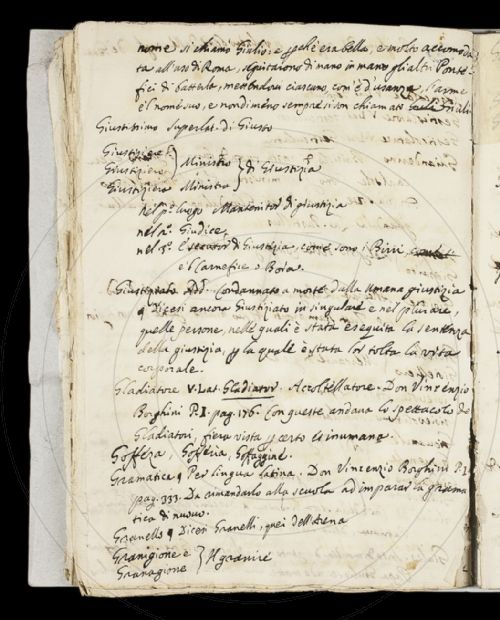 nome si chiamò Giulio: e p̱chè era bella, e molto accomoda-
ta all'uso di Roma, seguitarono di mano in mano gli altri Ponte-
fici di batterla, mettendovi ciascuno, com'è d'usanza, l'arme
e'l nome suo, e nondimeno sempre si son chiamate Giulj
Giustissimo superlat. di Giusto
Giustiziere
Giustiziero } Ministro } di Giustizia
Giustiziero Ministro
nel p.º luogo Mantenitor di giustizia
nel 2.º Giudice,
nel 3.º Esecutor di Giustizia, come sono i Birri
e'l Carnefice o Boia.
Giustiziato Add. Condannato a morte dalla umana giustizia
¶ Dicesi ancora Giustiziato in singulare e nel plurare,
quelle persone, nelle quali è stata eseguita la sentenza
della giustizia, p̱ la quale è stata lor tolta la vita
corporale.
Gladiatore V. Lat. Gladiator. Accoltellatore. Don Vincenzio
Borghini P. I. pag. 176. Con queste andava lo spettacolo de
Gladiatori, fiera vista p̱ certo et inumana.
Goffezza, Gofferia, Goffaggine.
Gramatica ¶ Per lingua latina. Don Vincenzio Borghini P. I.
pag. 333. Da rimandarlo alla scuola ad imparar la grama-
tica di nuovo.
Granello ¶ Dicesi Granelli, quei dell'Arena
Granigione e
Granagione } Il granire